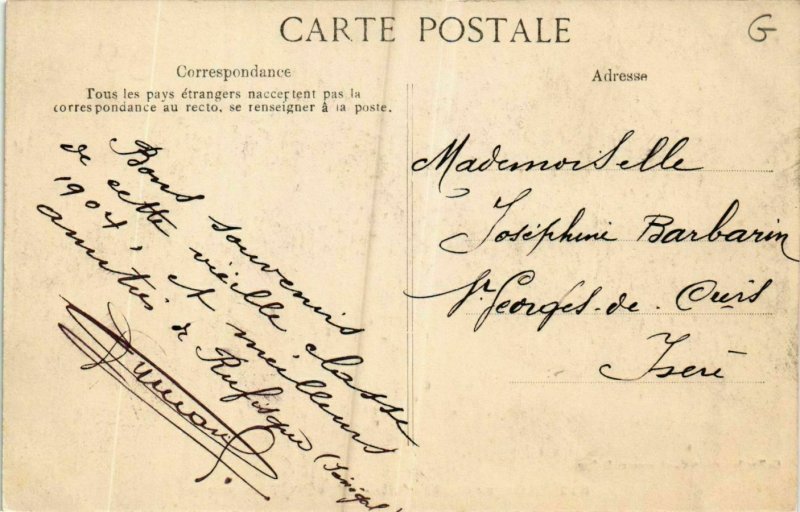 CARTE POSTALE
G
Correspondance
Tous les pays étrangers nacceptent pas la
correspondance au recto, se renseigner à la poste.
Adresse
Bons souvenirs
de cette vieille classe
1904, et meilleurs
amitiés de Rufisque (Sénégal)
Mademoiselle
Joséphine Barbarin
St Georges-de-
Isère